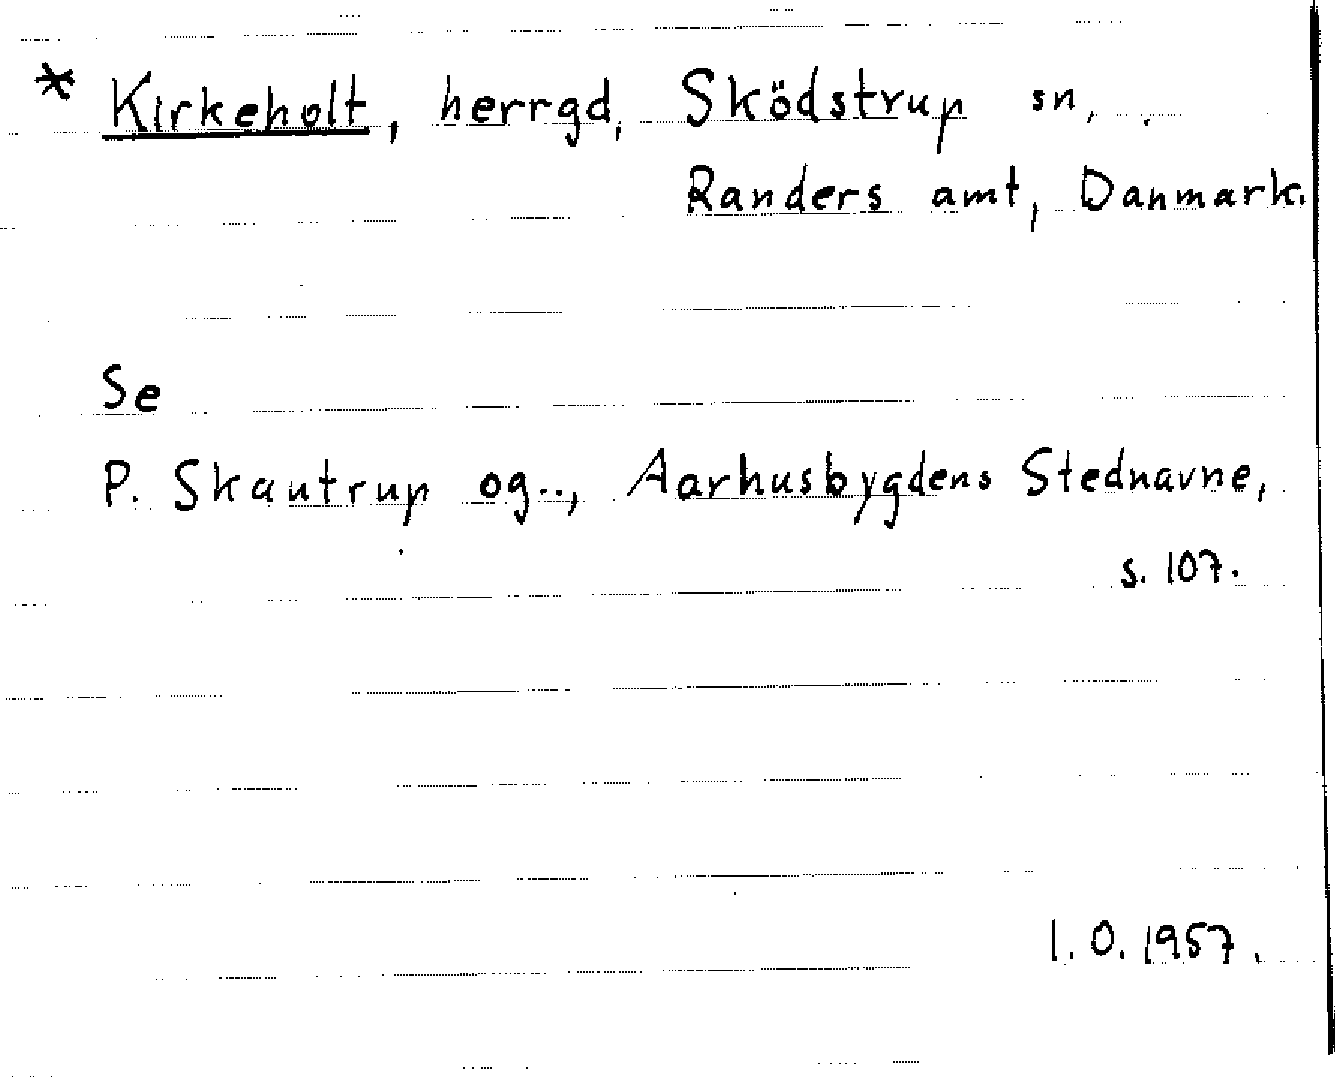 * Kirkeholt, herrgd, Sködstrup sn,
Randers amt, Danmark.
Se
P. Skautrup og.., Aarhusbygdens Stednavne,
s. 107.
I. O. 1957.